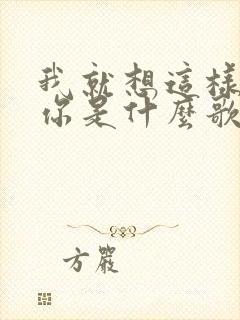 我就想這樣
你是什麼歌
方嚴